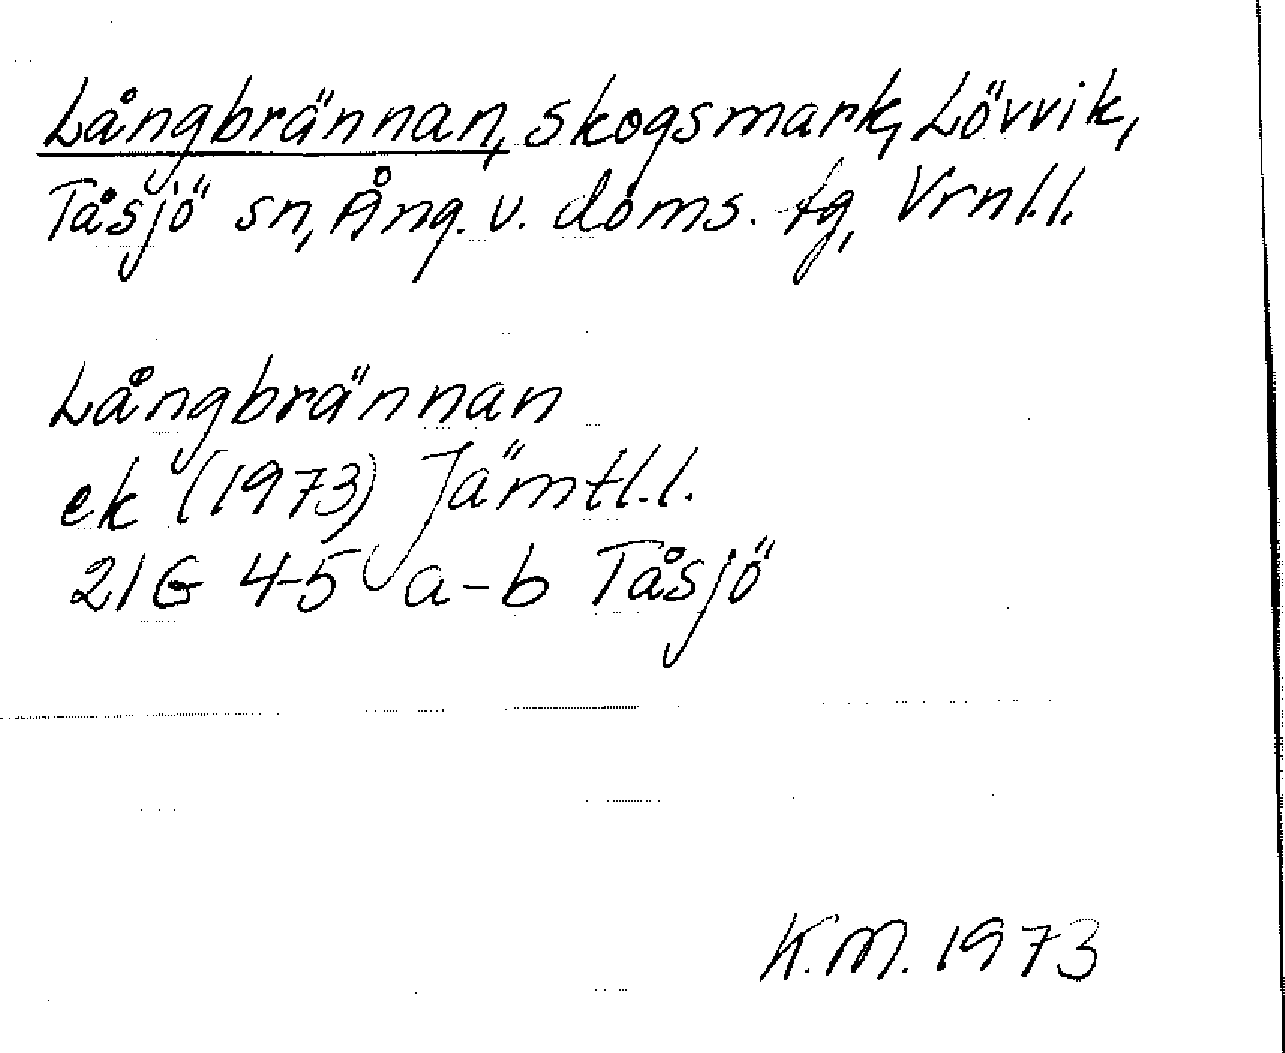 Långbrännan, skogsmark, Lövvik,
Tåsjö sn, Ång. v. doms. tg, Vrnl.l.
Långbrännan
ek (1973) Jämtl.l.
21G 4-5 a-b Tåsjö
K.M. 1973